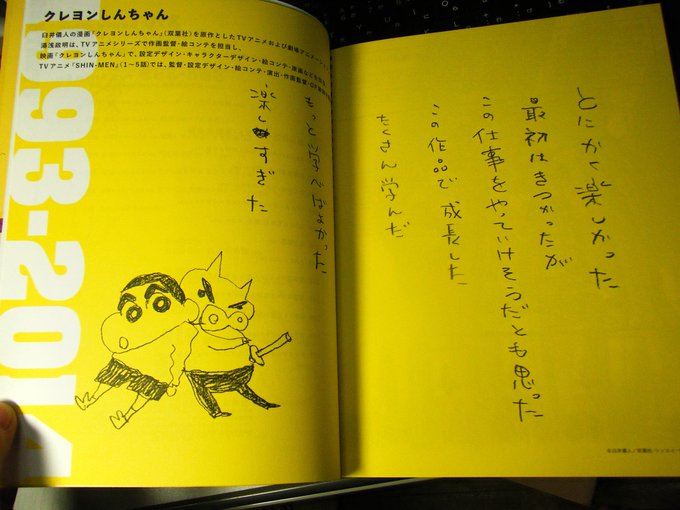 クレヨンしんちゃん
臼井儀人の漫画『クレヨンしんちゃん』(双葉社)を原作としたTVアニメおよび劇場アニメーション
湯浅政明は、TVアニメシリーズで作画監督・絵コンテを担当し、
映画『クレヨンしんちゃん』で、設定デザイン・キャラクターデザイン・絵コンテ・原画などを
TVアニメ「SHIN-MEN」(1〜5話)では、監督・設定デザイン・絵コンテ・演出・作画監督・
093-201
とにかく楽しかった
最初はきつかったが
この仕事をやっていけそうだとも思った
この作品で成長した
たくさん学んだ
もっと学べばよかった
楽しすぎた
©臼井儀人/双葉社・シンエイ・